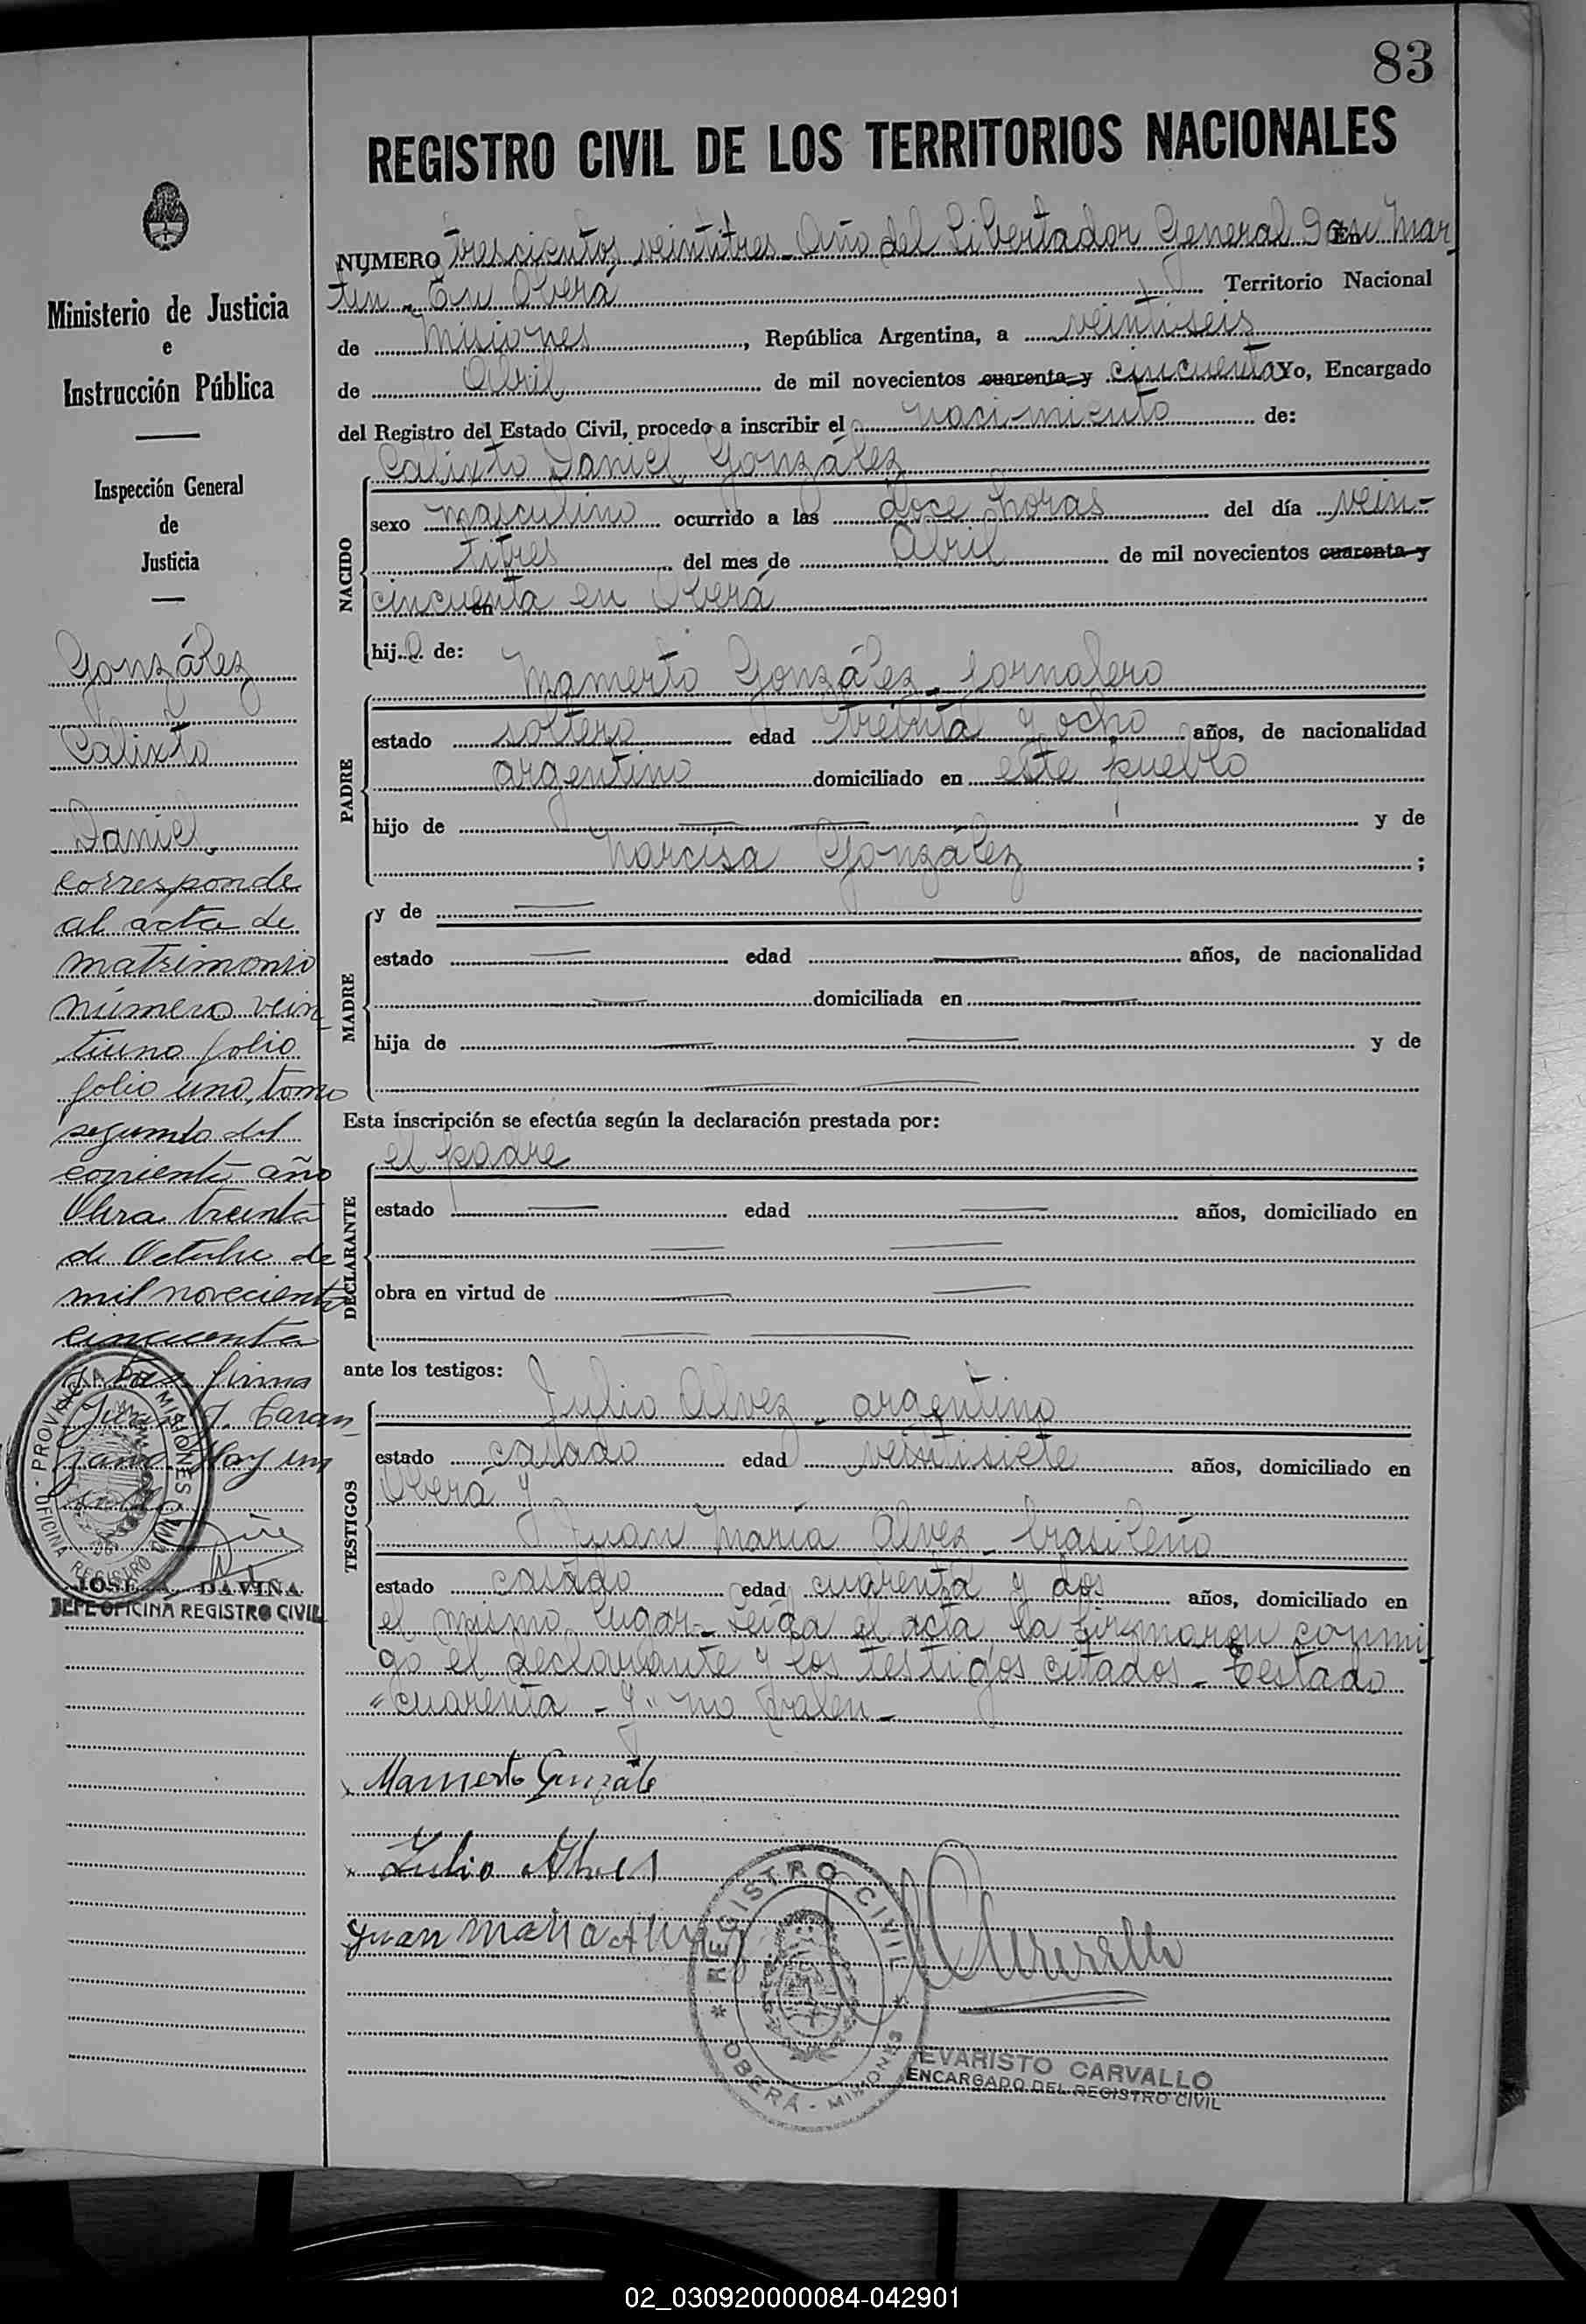 83
REGISTRO CIVIL DE LOS TERRITORIOS NACIONALES
NUMERO trescientos veintitres - Año del Libertador General San Mar
tín - En Oberá Territorio Nacional
de Misiones, República Argentina, a veintiseis
de Abril de mil novecientos cuarenta y cincuenta Yo, Encargado
del Registro del Estado Civil, procedo a inscribir el nacimiento de:
Calixto Daniel González
NACIDO
sexo masculino ocurrido a las doce horas del día vein-
titres del mes de Abril de mil novecientos cuarenta y
cincuenta en Oberá
hijo de:
Mamerto González - Jornalero
PADRE
estado soltero edad treinta y ocho años, de nacionalidad
argentino domiciliado en este pueblo
hijo de y de
Narcisa González ;
MADRE
y de
estado edad años, de nacionalidad
domiciliada en
hija de y de
Esta inscripción se efectúa según la declaración prestada por:
el padre
DECLARANTE
estado edad años, domiciliado en
obra en virtud de
ante los testigos:
Julio Alvez - argentino
TESTIGOS
estado casado edad veintisiete años, domiciliado en
Oberá y
Juan María Alvez - brasileño
estado casado edad cuarenta y dos años, domiciliado en
el mismo lugar - Leída el acta, la firmaron conmi
go el declarante y los testigos citados - Testado
"cuarenta - y" no valen -
Mamerto Gonzále
Julio Alves
Juan Maria
REGISTRO CIVIL
OBERÁ - MISIONES
EVARISTO CARVALLO
ENCARGADO DEL REGISTRO CIVIL
Ministerio de Justicia
e
Instrucción Pública
Inspección General
de
Justicia
González
Calixto
Daniel
corresponde
al acta de
matrimonio
número vein
tiuno folio
folio uno, tomo
segundo del
corriente año
Oberá treinta
de Octubre de
mil novecientos
cincuenta
firma
Hay un
sello
PROVINCIA DE MISIONES
OFICINA REGISTRO CIVIL
JOSE A. DAVIÑA
JEFE OFICINA REGISTRO CIVIL
02_030920000084-042901